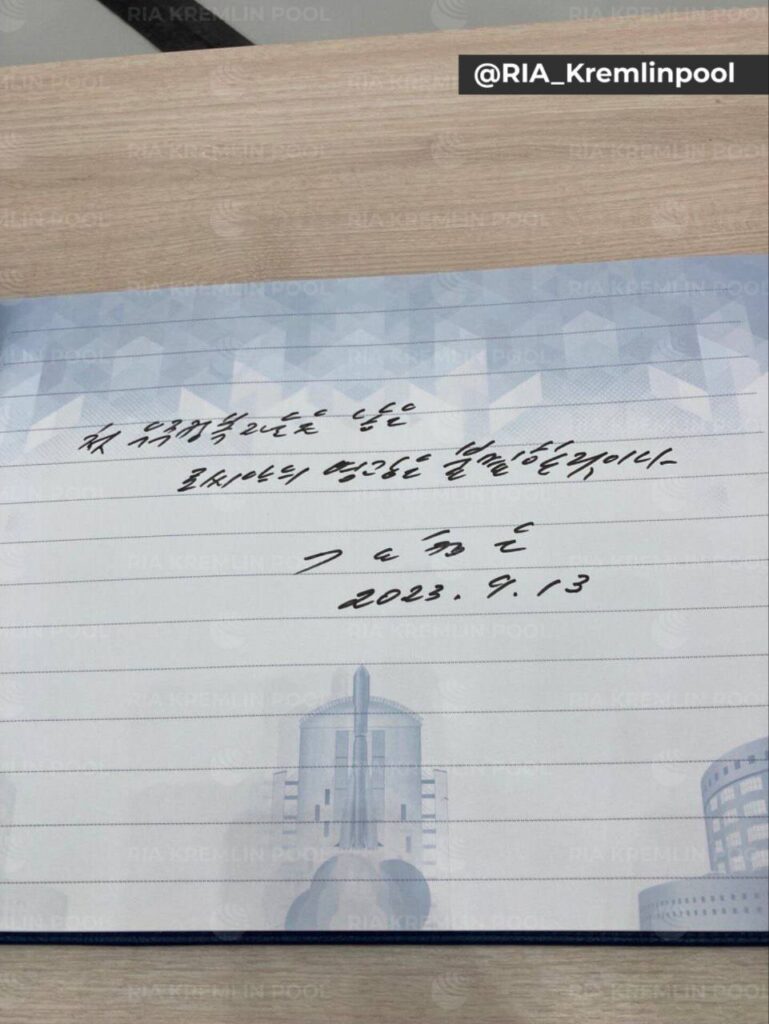 @RIA_Kremlinpool
RIA KREMLIN POOL
첫 우주정복자들을 낳은
로씨야의 영광은 불멸할것이다
김정은
2023. 9. 13